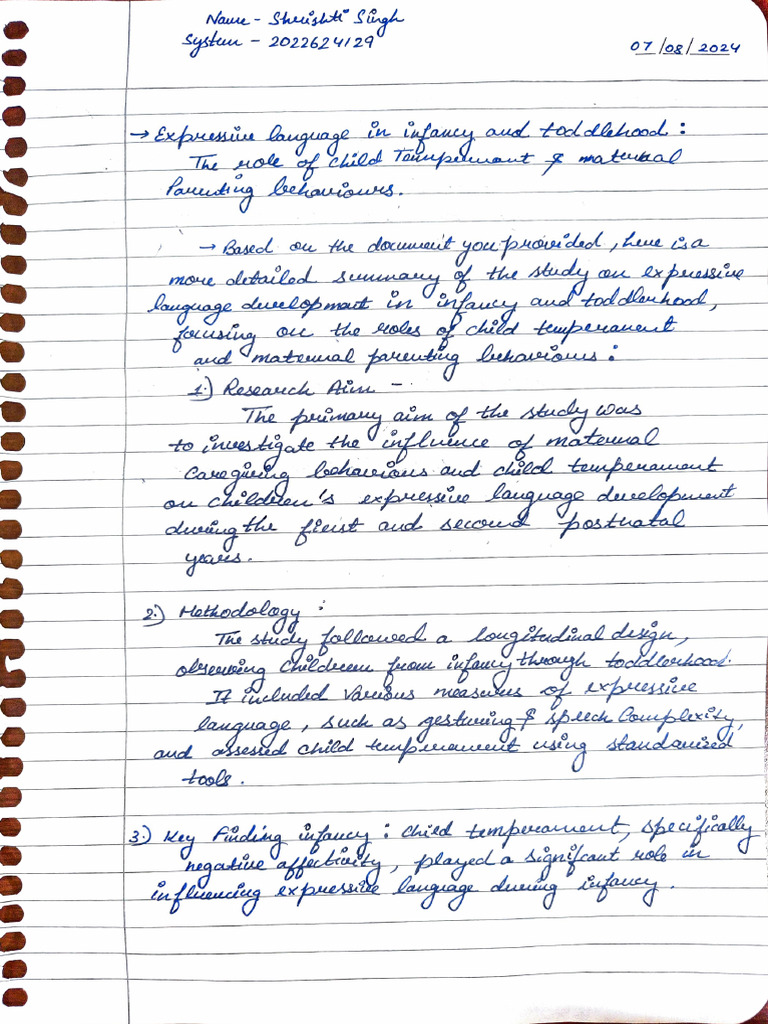 Name - Shrishti Singh
System - 2022624129
07/08/2024
→ Expressive language in infancy and toddlehood :
The role of child Temperment & maternal
Parenting behaviours.
→ Based on the document you provided, here is a
more detailed summary of the study on expressive
language development in infancy and toddlerhood,
focusing on the roles of child temperament
and maternal parenting behaviours :
1.) Research Aim -
The primary aim of the study was
to investigate the influence of maternal
caregiving behaviours and child temperament
on children's expressive language development
during the first and second postnatal
years.
2.) Methodology :
The study followed a longitudinal design,
observing children from infancy through toddlerhood.
It included various measures of expressive
language, such as gesturing & speech complexity,
and assessed child temperament using standarized
tools.
3.) Key Finding infancy : Child temperament, specifically
negative affectivity, played a significant role in
influencing expressive language during infancy.